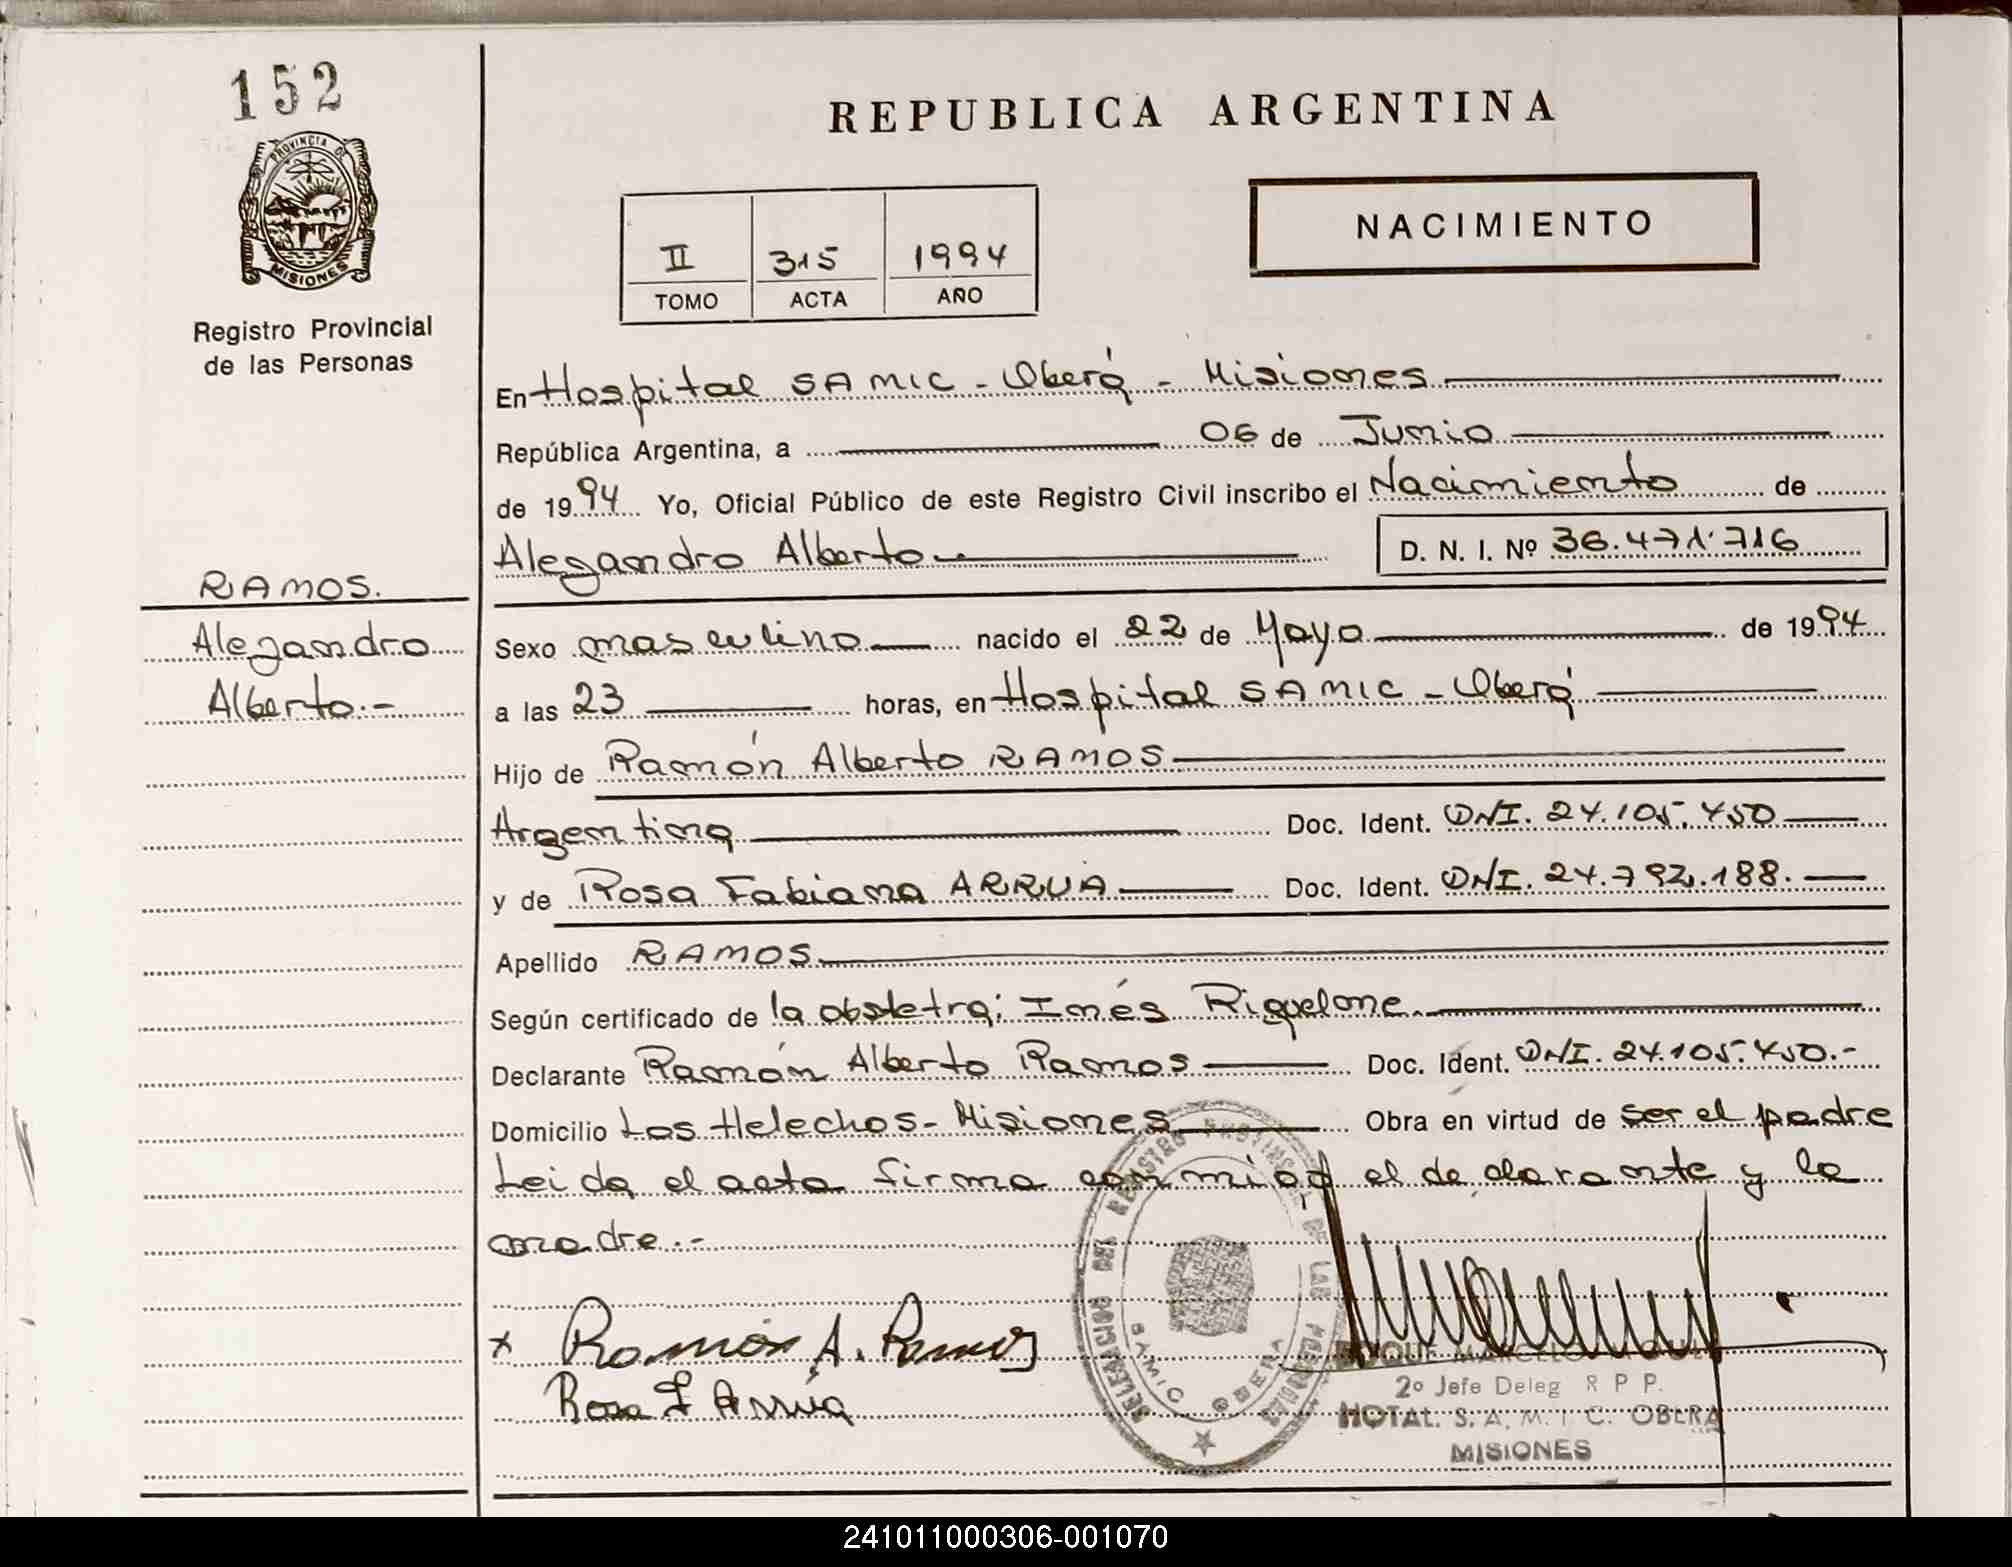 152
PROVINCIA DE
MISIONES
Registro Provincial
de las Personas
REPUBLICA ARGENTINA
II 315 1994
TOMO ACTA AÑO
NACIMIENTO
En Hospital SAMIC - Oberá - Misiones
República Argentina, a 06 de Junio
de 1994 Yo, Oficial Público de este Registro Civil inscribo el Nacimiento de
Alejandro Alberto D. N. I. Nº 36.471.716
RAMOS.
Alejandro
Alberto.-
Sexo masculino nacido el 22 de Mayo de 1994
a las 23 horas, en Hospital SAMIC - Oberá
Hijo de Ramón Alberto RAMOS
Argentina Doc. Ident. DNI. 24.105.450
y de Rosa Fabiana ARRUA Doc. Ident. DNI. 24.792.188.
Apellido RAMOS
Según certificado de la obstetra: Inés Riquelme.
Declarante Ramón Alberto Ramos Doc. Ident. DNI. 24.105.450.-
Domicilio Los Helechos - Misiones Obra en virtud de ser el padre
Leida el acta firma conmigo el declarante y la
madre.-
x Ramón A. Ramos
Rosa F Arrúa
REGISTRO PROVINCIAL DE LAS PERSONAS
SAMIC OBERA
2º Jefe Deleg R P P.
HOTAL. S. A. M. I C. OBERA
MISIONES
241011000306-001070